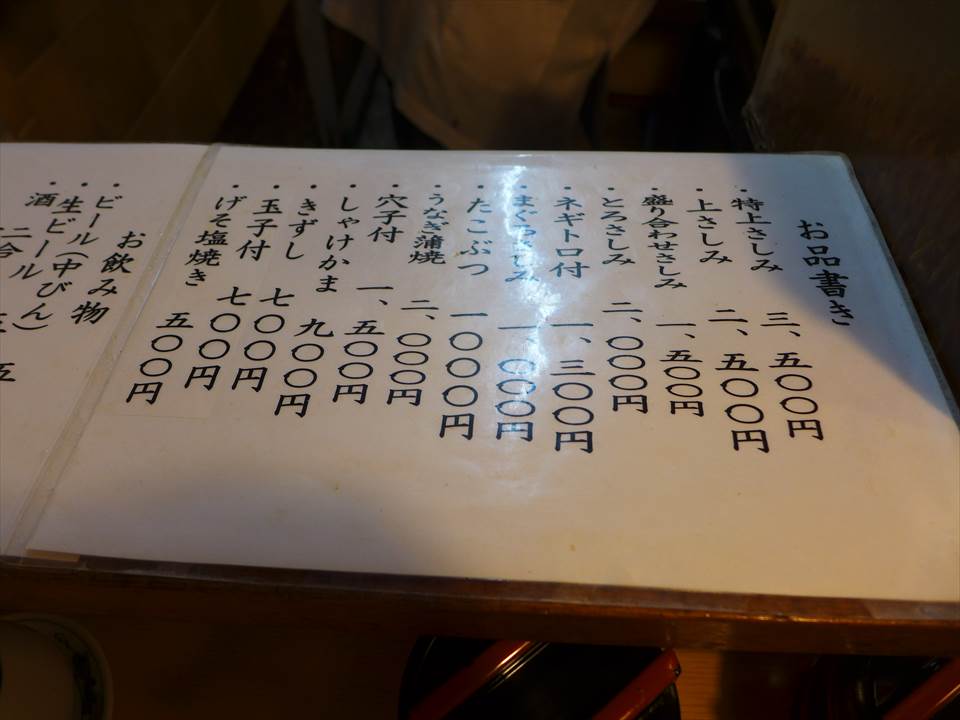 お品書き
・特上さしみ 三、五〇〇円
・上さしみ 二、五〇〇円
・盛り合わせさしみ 一、五〇〇円
・とろさしみ 二、〇〇〇円
・ネギトロ付 一、三〇〇円
・まぐろさしみ 一、〇〇〇円
・たこぶつ 一〇〇〇円
・うなぎ蒲焼 二、〇〇〇円
・穴子付 一、五〇〇円
・しゃけかま 九〇〇円
・きずし 七〇〇円
・玉子付 七〇〇円
・げそ塩焼き 五〇〇円
お飲み物
・ビール(中びん)
・生ビール
・酒 二合